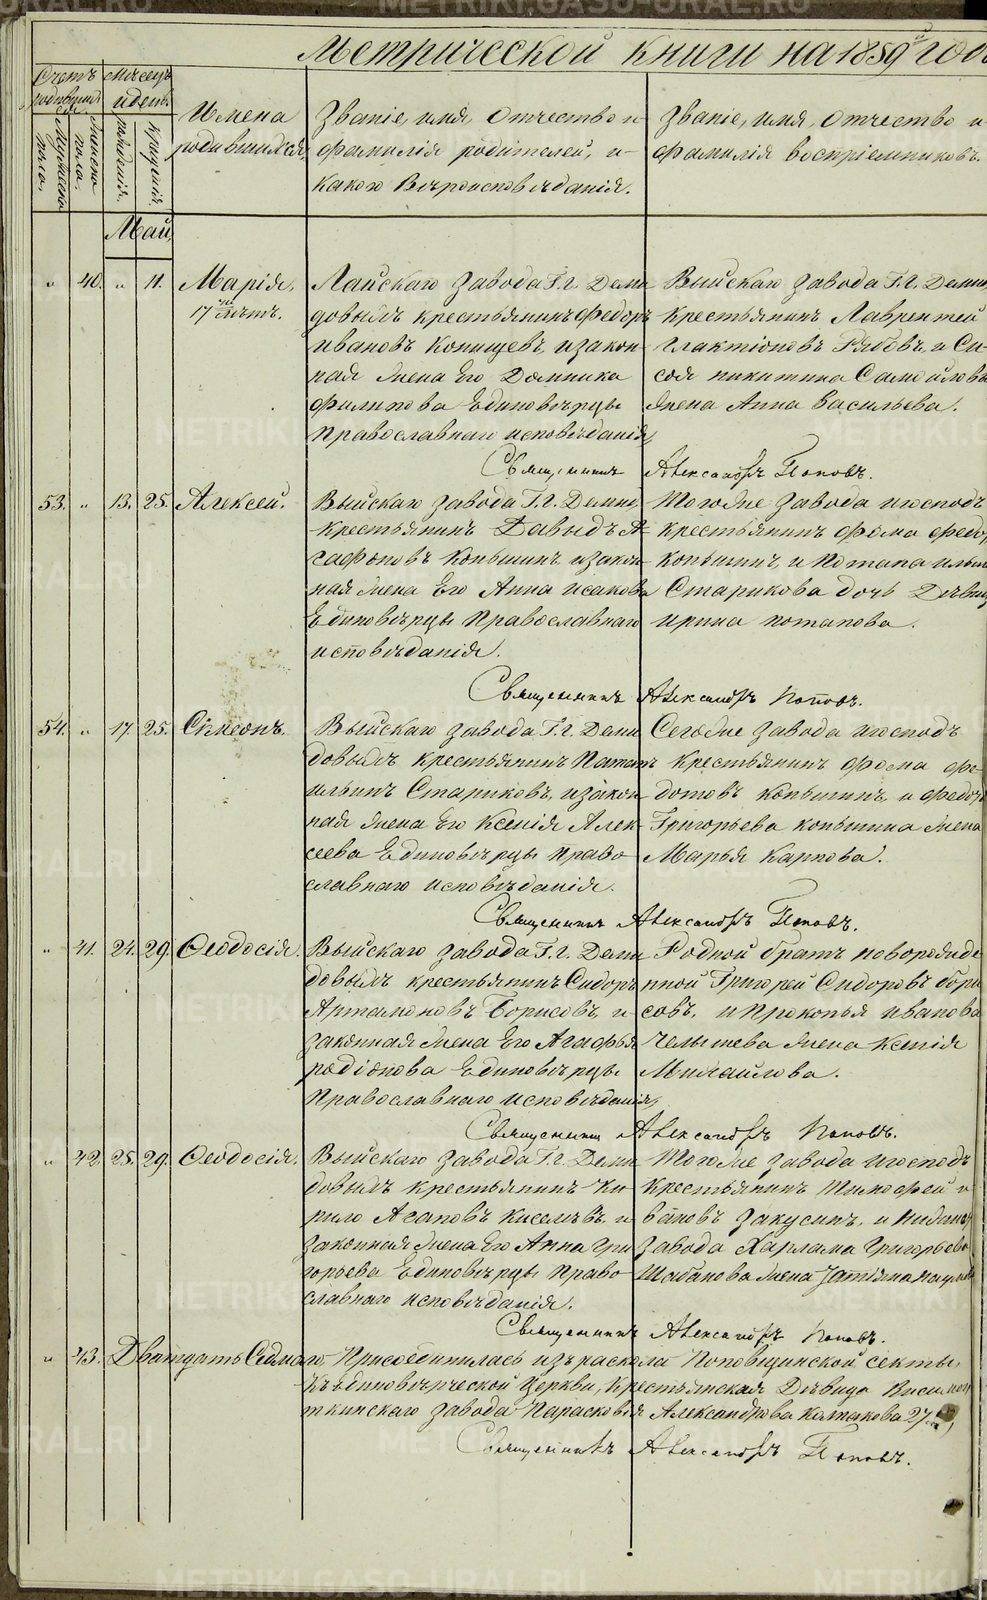 Метрической книги на 1859й год
Счетъ родившихся
Мужеска пола.
Женска пола.
Месецъ и день
рожденія.
крещенія.
Имена родившихся
Званіе, имя, отчество и фамилія родителей, и какого вѣроисповѣданія.
Званіе, имя, отчество и фамилія воспріемниковъ.
Май
" 40. " 11. Марія,
17ти лѣтъ.
Лайскаго завода Г.г. Деми
довыхъ крестьянинъ Федоръ
Ивановъ Копищевъ, и закон
ная жена Его Домника
Филипова Единовѣрцы
Православнаго исповѣданія,
Выйскаго завода Г.г. Демид
крестьянинъ Лаврентей
Глактіоновъ Рябовъ, и Сы
соя никитина Самойловы
жена Анна Васильева.
Священникъ Александръ Поповъ.
53. " 13. 25. Алексей.
Выйскаго завода Г.г. Демид
крестьянинъ Давыдъ А
гафоновъ Копьшинъ и закон
ная жена Его Анна исакова
Единовѣрцы Православнаго
исповѣданія.
Тогоже завода и господъ
крестьянинъ Фома Федо
копьшинъ, и Потапа ильи
Старикова дочь Дѣвиц
ирина потапова.
Священникъ Александръ Поповъ.
54. " 17. 25. Сѵмеонъ.
Выйскаго завода Г.г. Деми
довыхъ крестьянинъ Потапъ
ильинъ Стариковъ, и закон
ная жена Его Ксенія Алек
сеева Единовѣрцы Право
славнаго исповѣданія.
Сегоже завода и господъ
крестьянинъ Фома Фе
дотовъ копьшинъ, и Федора
Григорьева копьшина жена
Марья Карпова.
Священникъ Александръ Поповъ.
" 41. 24. 29. Ѳеодосія.
Выйскаго завода Г.г. Деми
довыхъ крестьянинъ Сидоръ
Артамоновъ Борисовъ, и
законная жена Его Агафья
родіонова Единовѣрцы
Православнаго исповѣданія,
Родной братъ новорожде
нной Григорей Сидоровъ бори
совъ, и Прокопья иванова
Челышева жена Ксенія
Михаилова.
Священникъ Александръ Поповъ.
" 42. 25. 29. Ѳеодосія.
Выйскаго завода Г.г. Деми
довыхъ крестьянинъ Ки
рило Агаповъ Киселевъ, и
законная жена Его Анна Гри
горьева Единовѣрцы Право
славнаго исповѣданія.
Тогоже завода и господъ
крестьянинъ Тимофей и
вановъ Закусинъ, и
завода Харлама Григорьева
Шабанова жена Татіана
Священникъ Александръ Поповъ.
" 43. Дватцать Седмаго Присоединилась изъ раскола Поповщинской секты,
Къ единовѣрческой Церкви, Крестьянская Дѣвица Висимош
ткинскаго завода Парасковія Александрова Колпакова 27
Священникъ Александръ Поповъ.
METRIKI.GASO-URAL.RU